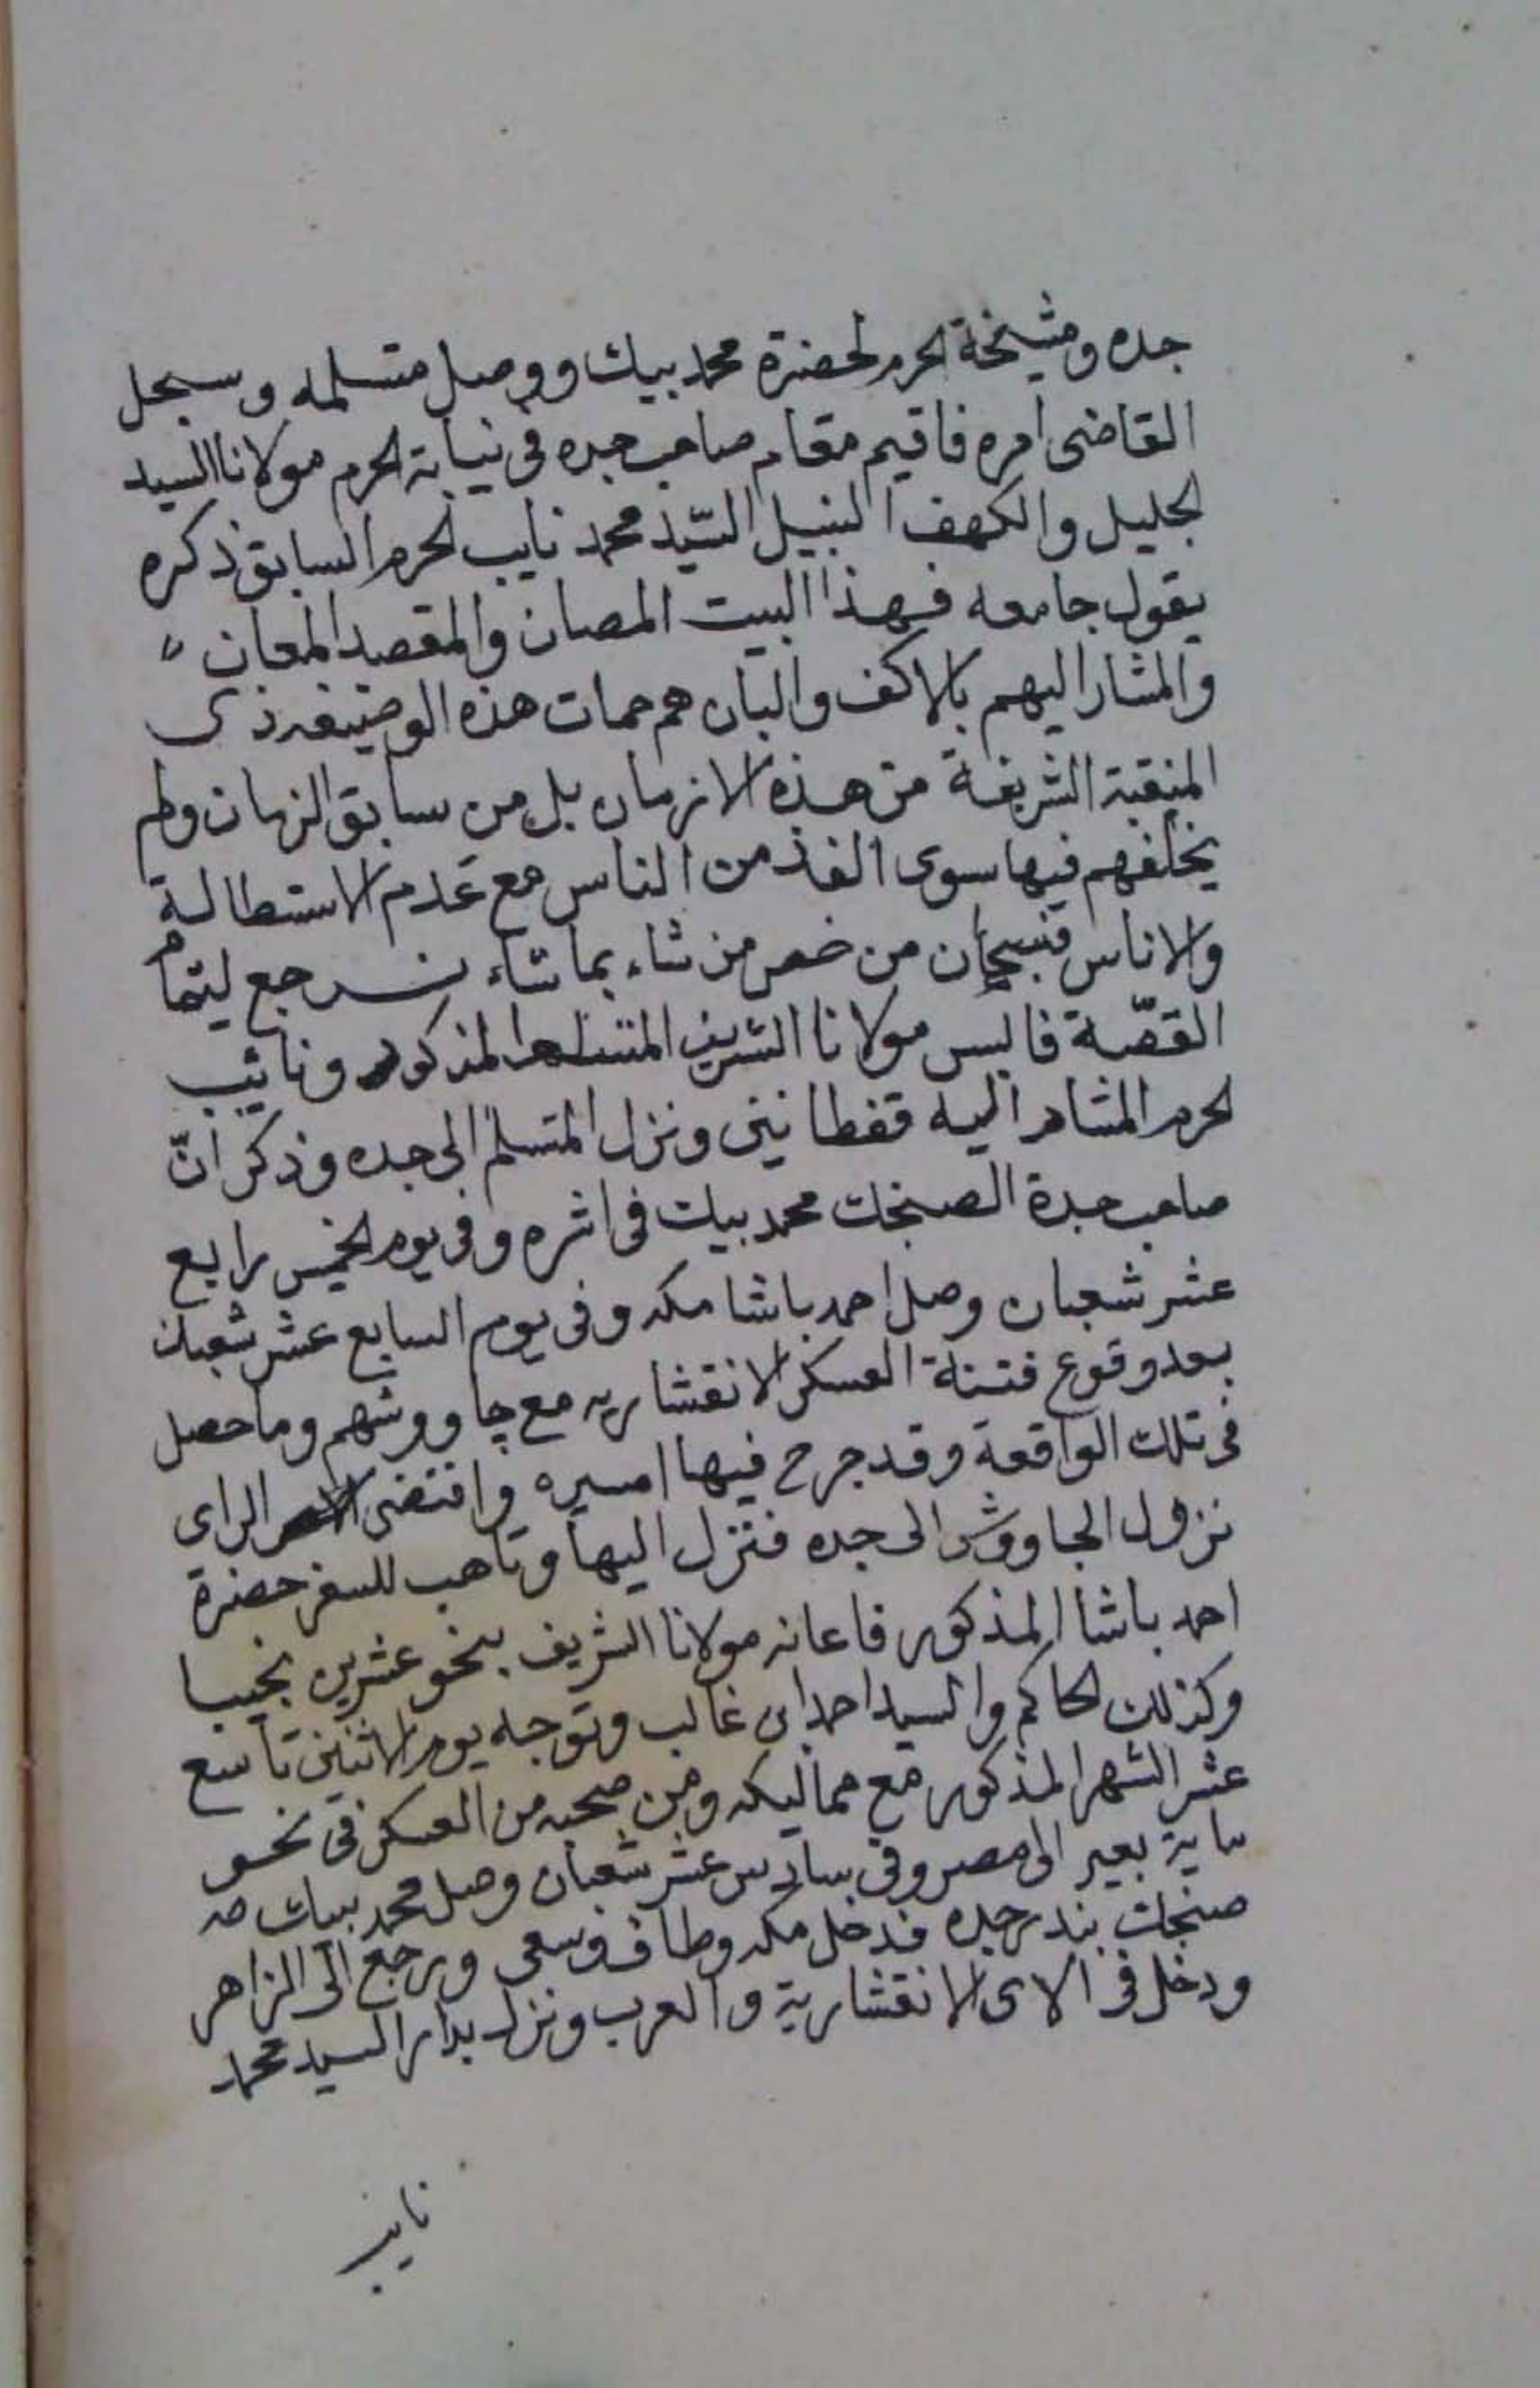 جده ومشيخة الحرم لحضرة محمد بيك ووصل متسلمه وسجل
القاضى امره فاقيم مقام صاحب جده فى نيابة الحرم مولانا السيد
الجليل والكهف النبيل السّيد محمد نايب الحرم السابق ذكره
يقول جامعه فهذا البيت المصان والمقصد المعان
والمشار اليهم بالاكف والبان هم حمات هذه الوضيفه ذى
المنقبة الشريفة من هذه الازمان بل من سابق الزمان ولم
يخلفهم فيها سوى الفذ من الناس مع عدم الاستطالة
والاناس فسبحان من خص من شاء بما شاء نرجع ليتمام
القصّة فالبس مولانا الشريف المتسلم المذكور ونائب
الحرم المشار اليه قفطانين ونزل المتسلم الى جده وذكر انّ
صاحب جدة الصنجك محمد بيك فى اثره وفى يوم الخميس رابع
عشر شعبان وصل احمد باشا مكه وفى يوم السابع عشر شعبان
بعد وقوع فتنة العسكر الانقشاريه مع چاووشهم وما حصل
فى تلك الواقعة وقد جرح فيها اميره واقتضى الراى
نزول الجاووش الى جده فنزل اليها وتاهب للسفر حضرة
احمد باشا المذكور فاعانه مولانا الشريف بنحو عشرين نجيبا
وكذلك الحاكم والسيد احمد ابن غالب وتوجه يوم الاثنين تاسع
عشر الشهر المذكور مع مماليكه ومن صحبه من العسكر فى نحو
ماية بعير الى مصر وفى سادس عشر شعبان وصل محمد بيك
صنجك بندر جده فدخل مكه وطاف وسعى ورجع الى الزاهر
ودخل فى الاى الانقشارية والعرب ونزل بدار السيد محمد
نايب